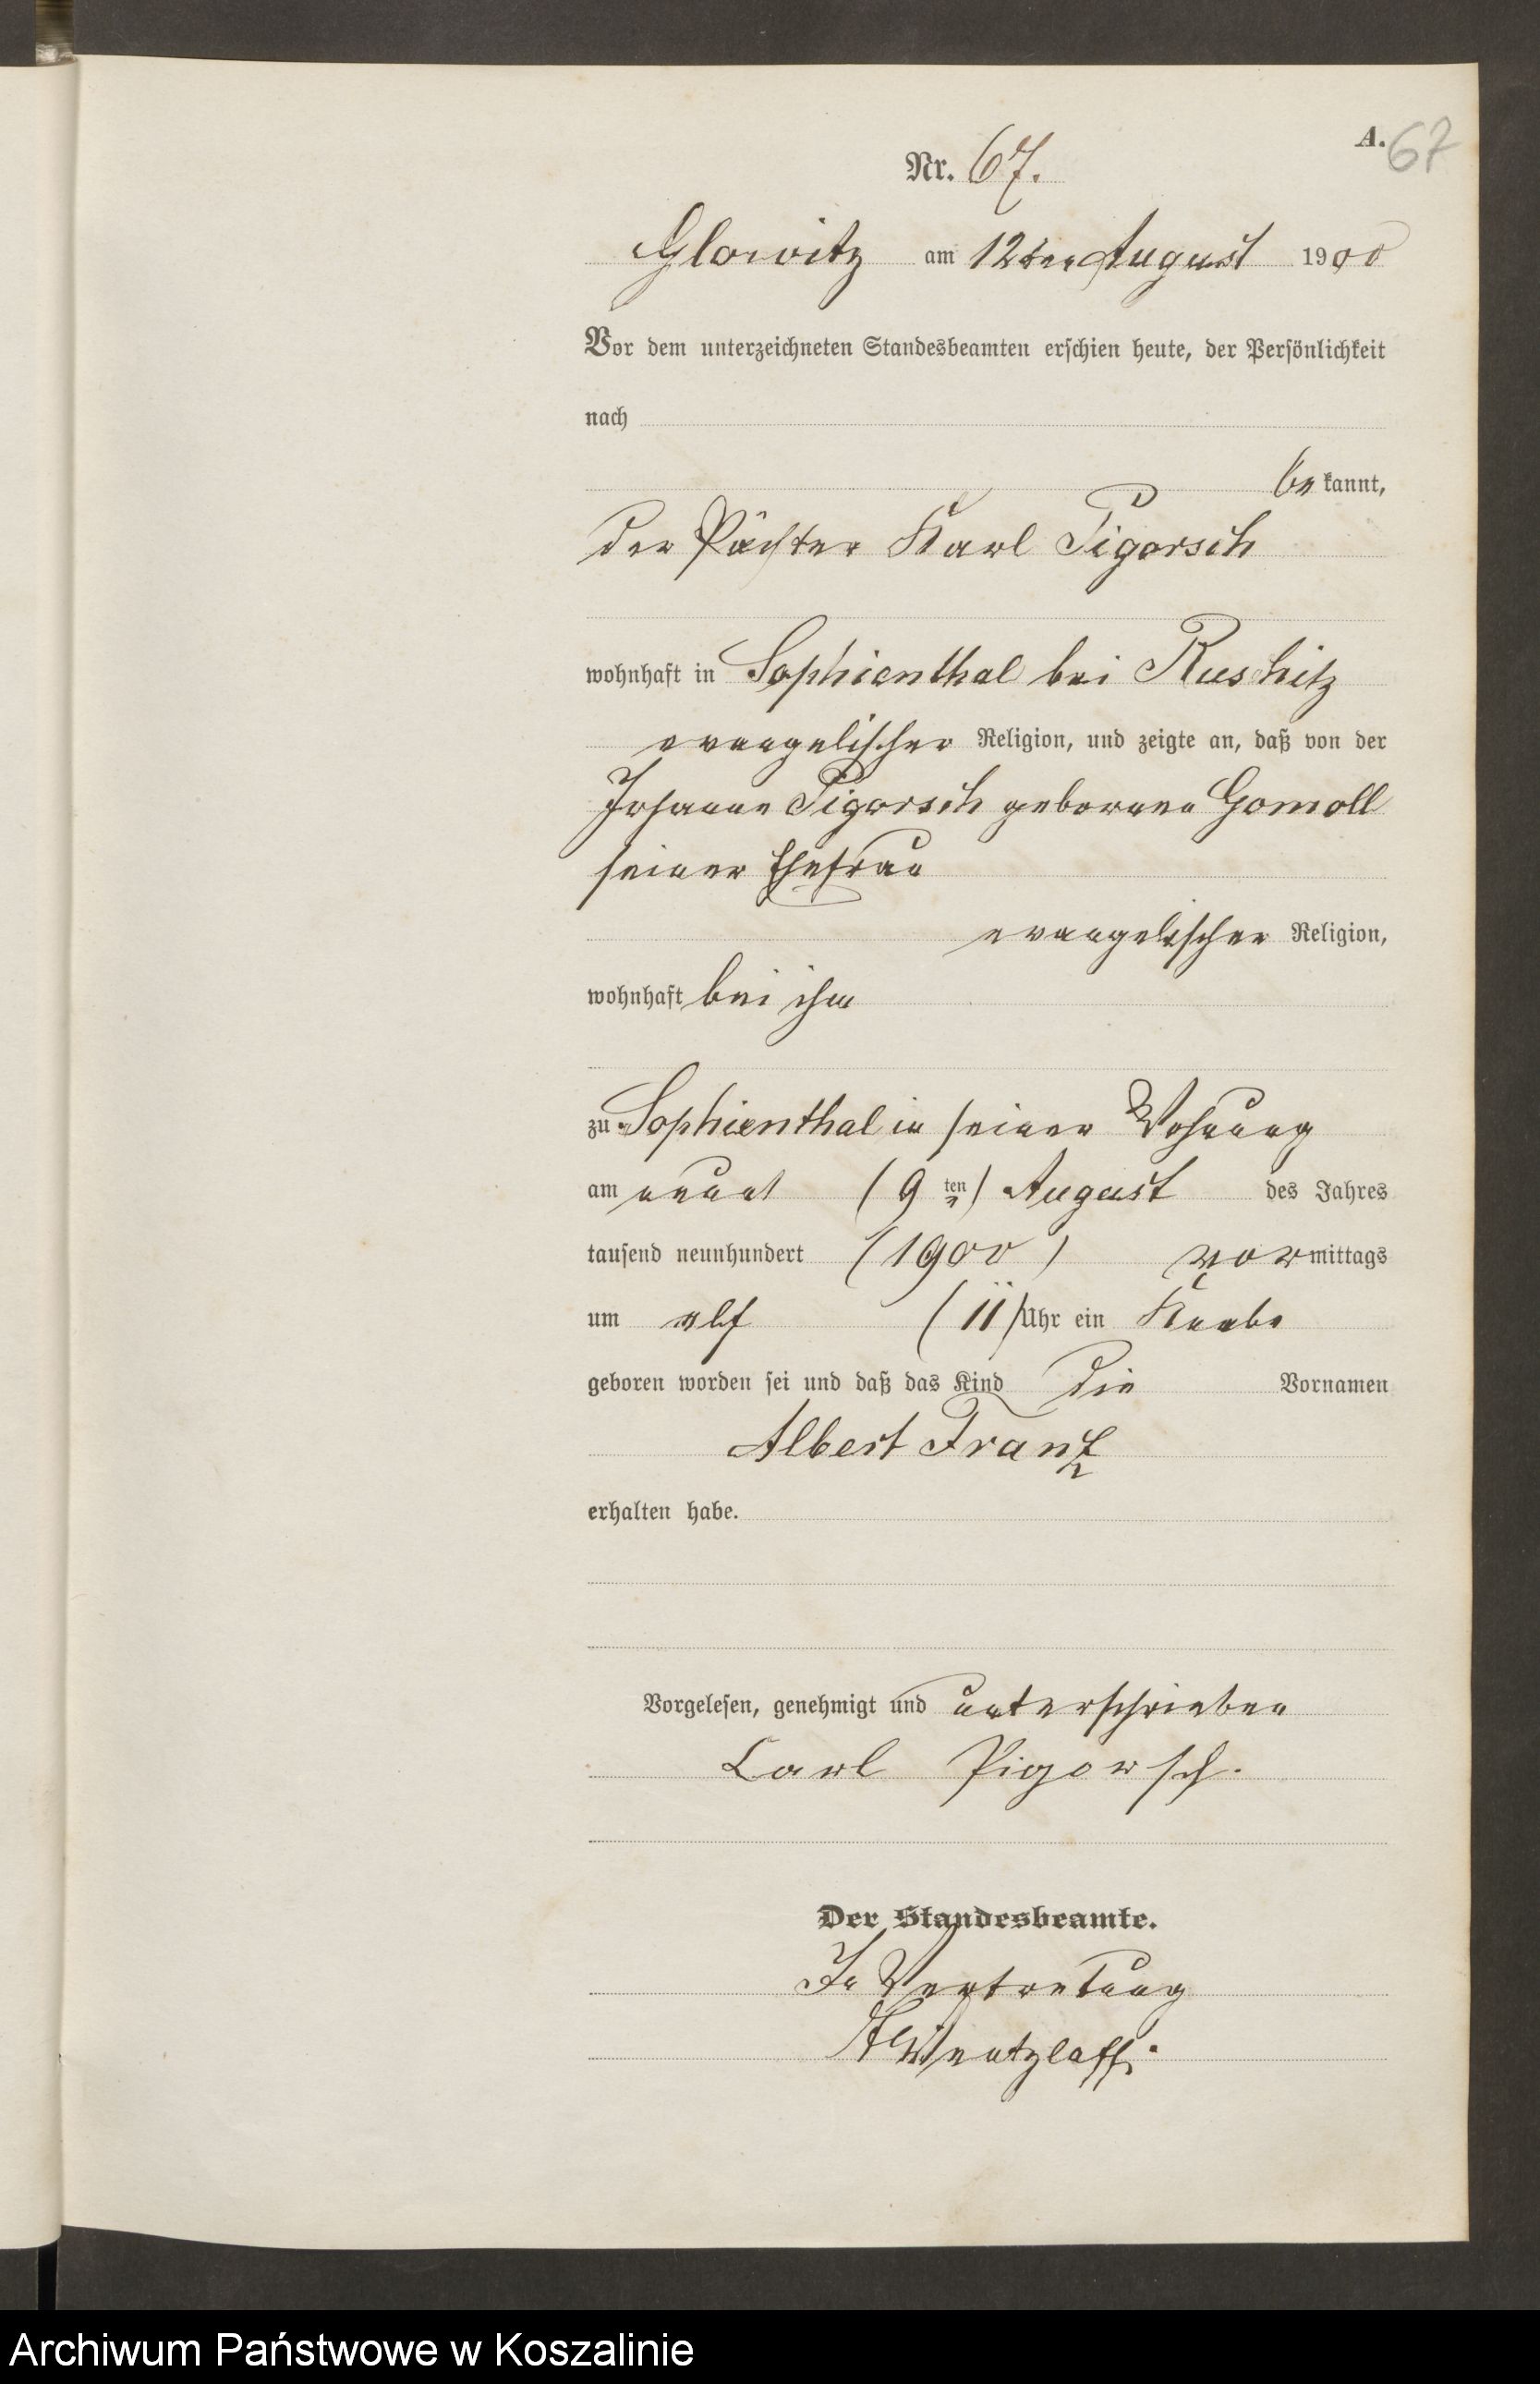 A. 67
Nr. 67.
Glowitz am 12ten August 1900
Vor dem unterzeichneten Standesbeamten erschien heute, der Persönlichkeit
nach
bekannt,
der Pächter Karl Pigorsch
wohnhaft in Sophienthal bei Ruschitz
evangelischer Religion, und zeigte an, daß von der
Johanne Pigorsch geborenen Gomoll
seiner Ehefrau
evangelischer Religion,
wohnhaft bei ihm
zu Sophienthal in seiner Wohnung
am neunten (9 ten) August des Jahres
tausend neunhundert (1900) vormittags
um elf (11) Uhr ein Knabe
geboren worden sei und daß das Kind die Vornamen
Albert Franz
erhalten habe.
Vorgelesen, genehmigt und unterschrieben
Carl Pigorsch.
Der Standesbeamte.
In Vertretung
Wentzlaff.
Archiwum Państwowe w Koszalinie